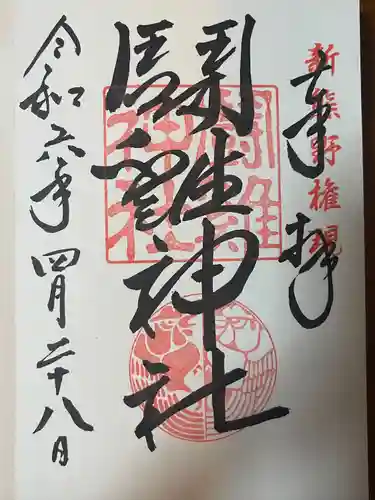 新熊野権現
奉拝
鬪雞神社
鬪雞神社
令和六年四月二十八日